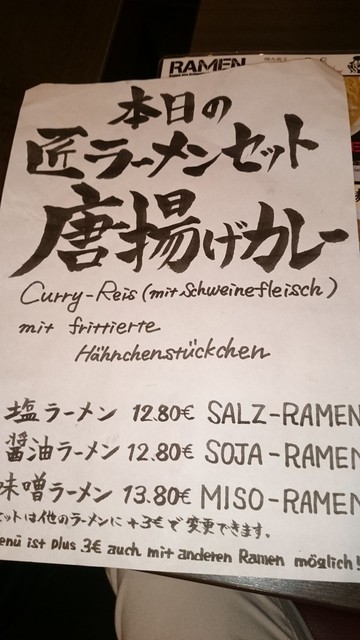 RAMEN
本日の
匠ラーメンセット
唐揚げカレー
Curry-Reis (mit Schweinefleisch)
mit frittierte
Hähnchenstückchen
塩ラーメン 12.80€ SALZ-RAMEN
醤油ラーメン 12.80€ SOJA-RAMEN
味噌ラーメン 13.80€ MISO-RAMEN
セットは他のラーメンに +3€で変更できます。
enü ist plus 3€ auch mit anderen Ramen möglich!